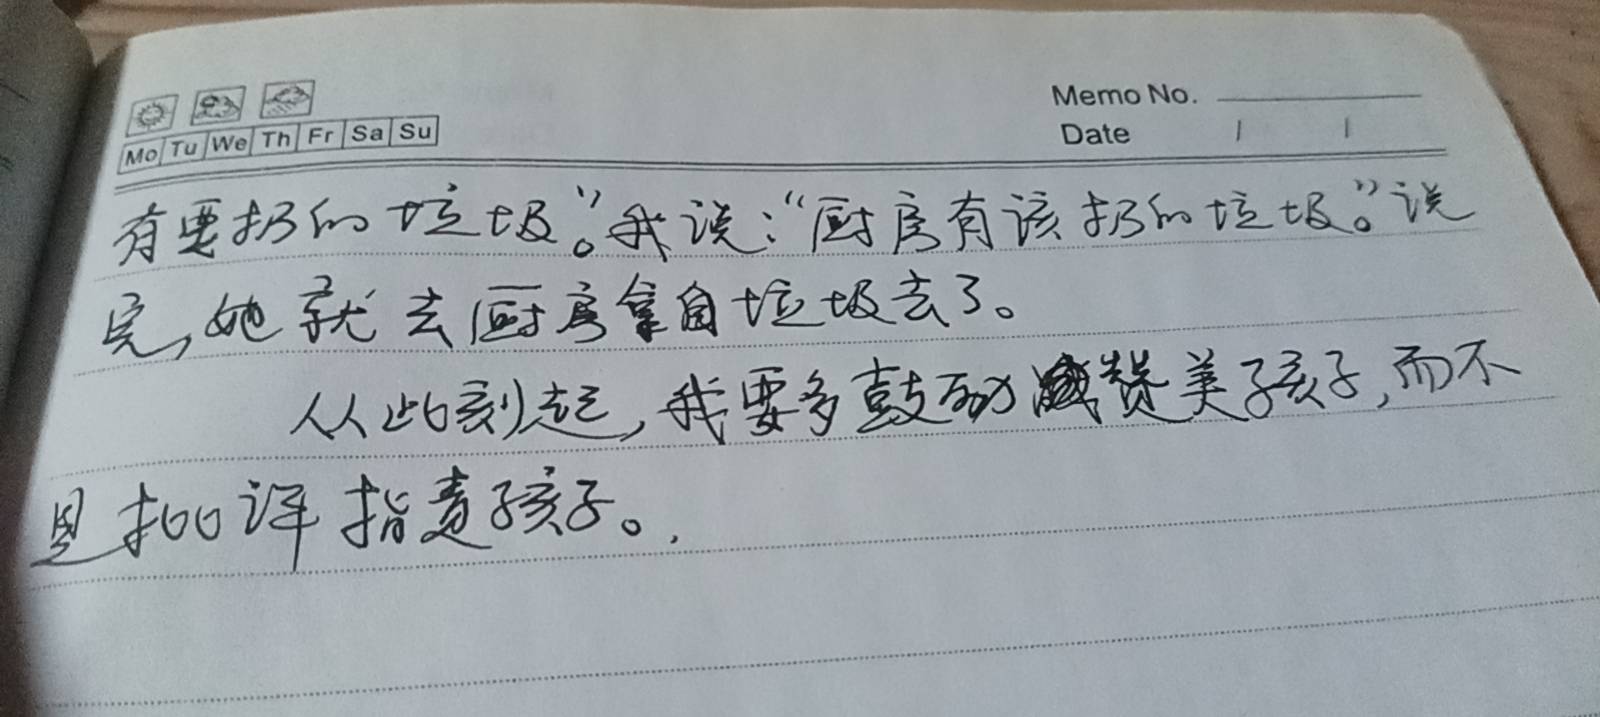 Memo No.
Mo Tu We Th Fr Sa Su
Date / /
有要扔的垃圾。”我说：“厨房有该扔的垃圾。”说
完，她就去厨房拿自垃圾去了。
从此刻起，我要多鼓励赞美孩子，而不
是批评指责孩子。